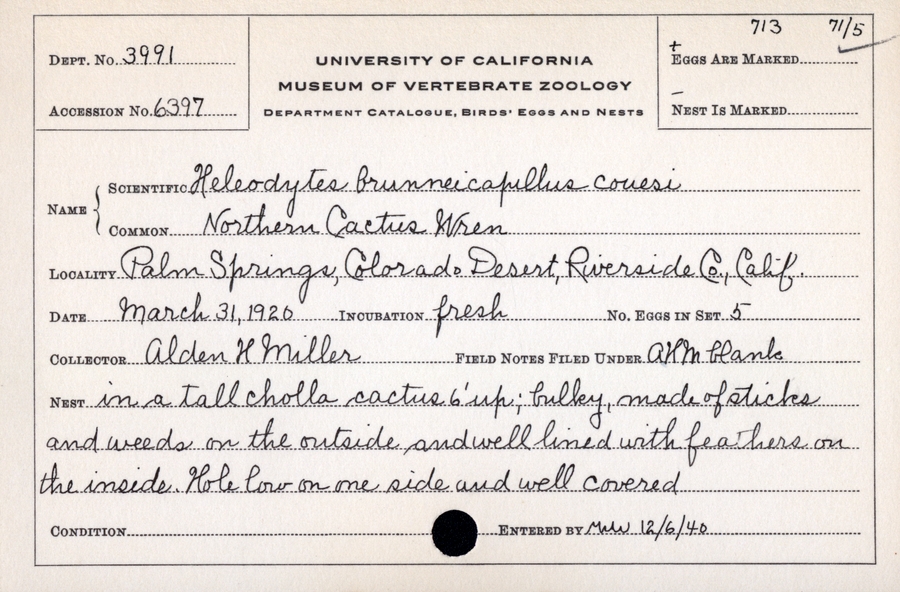 713 71/5
DEPT. NO. 3991
UNIVERSITY OF CALIFORNIA
+
EGGS ARE MARKED
MUSEUM OF VERTEBRATE ZOOLOGY
ACCESSION NO. 6397
DEPARTMENT CATALOGUE, BIRDS' EGGS AND NESTS
–
NEST IS MARKED
NAME { SCIENTIFIC Heleodytes brunneicapillus couesi
COMMON Northern Cactus Wren
LOCALITY Palm Springs, Colorado Desert, Riverside Co., Calif.
DATE March 31, 1920 INCUBATION fresh NO. EGGS IN SET 5
COLLECTOR Alden H Miller FIELD NOTES FILED UNDER AHM blank
NEST in a tall cholla cactus 6' up; bulky, made of sticks
and weeds on the outside and well lined with feathers on
the inside. Hole low on one side and well covered
CONDITION ENTERED BY 12/6/40